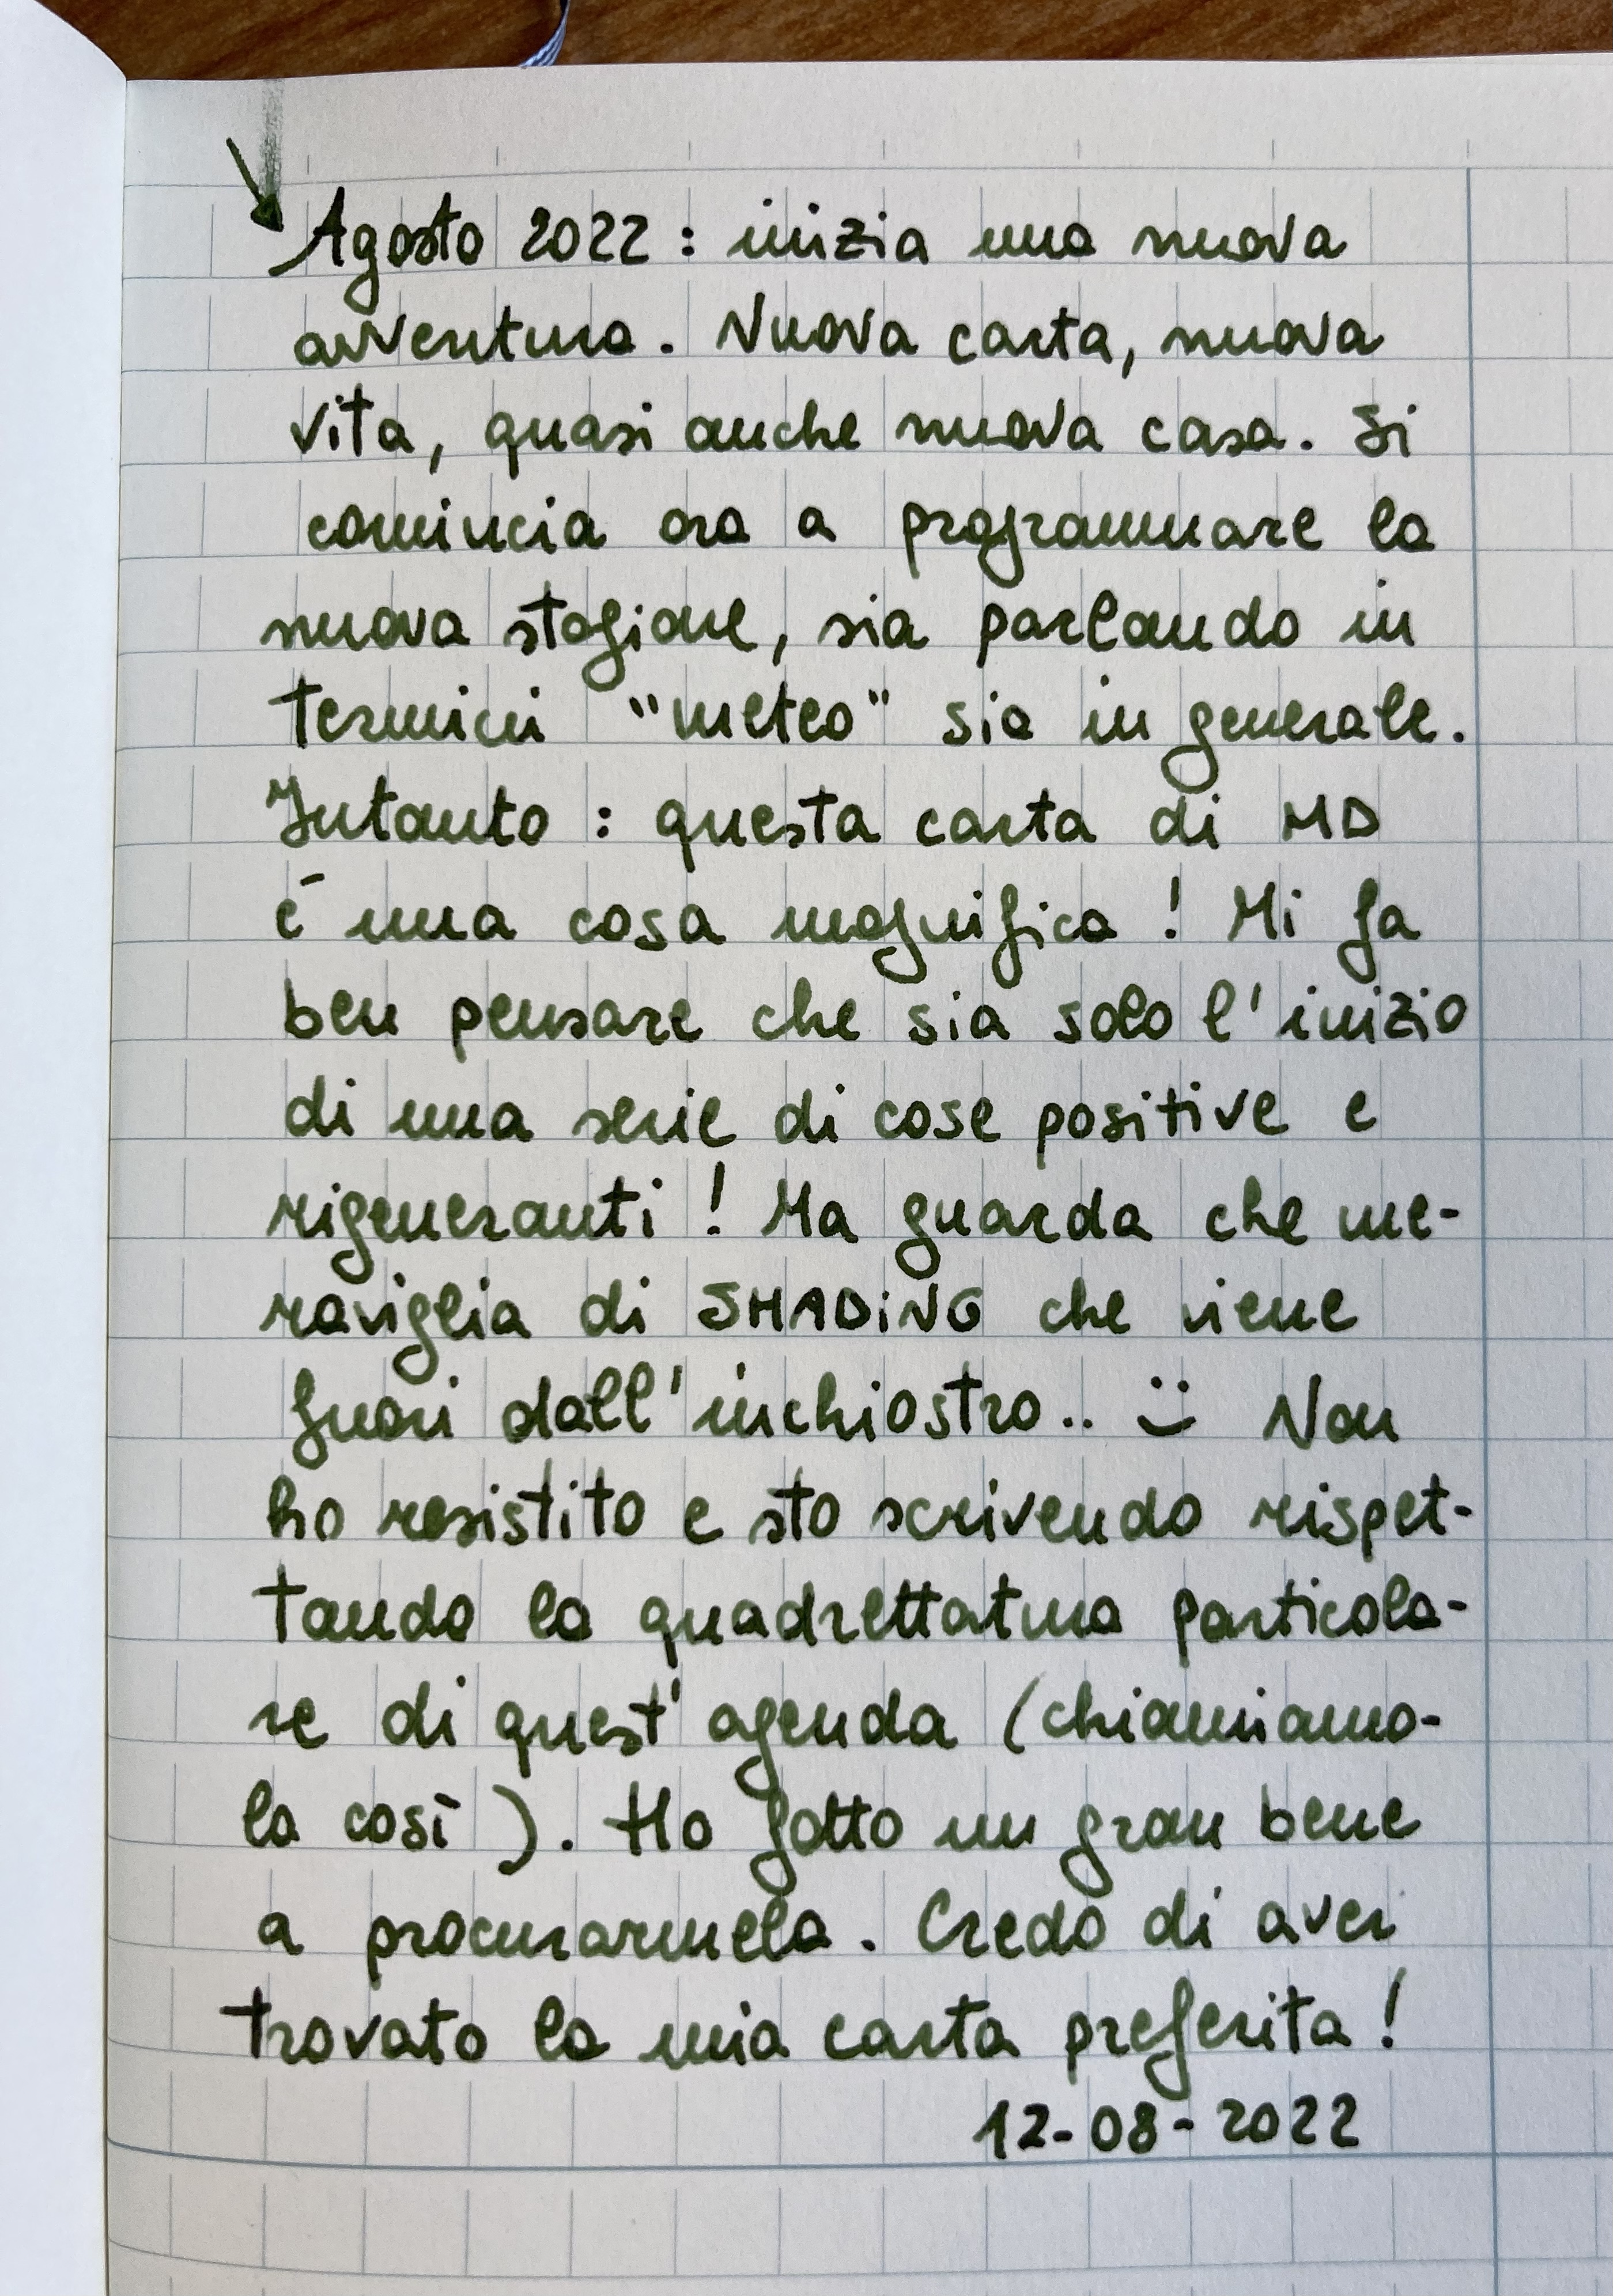 Agosto 2022 : inizia una nuova
avventura. Nuova carta, nuova
vita, quasi anche nuova casa. Si
comincia ora a programmare la
nuova stagione, sia parlando in
termini "meteo" sia in generale.
Intanto : questa carta di MD
è una cosa magnifica ! Mi fa
ben pensare che sia solo l'inizio
di una serie di cose positive e
rigeneranti ! Ma guarda che me-
raviglia di SHADiNG che viene
fuori dall'inchiostro.. :) Non
ho resistito e sto scrivendo rispet-
tando la quadrettatura particola-
re di quest'agenda (chiamiamo-
la così ). Ho fatto un gran bene
a procurarmela. Credo di aver
trovato la mia carta preferita !
12-08-2022